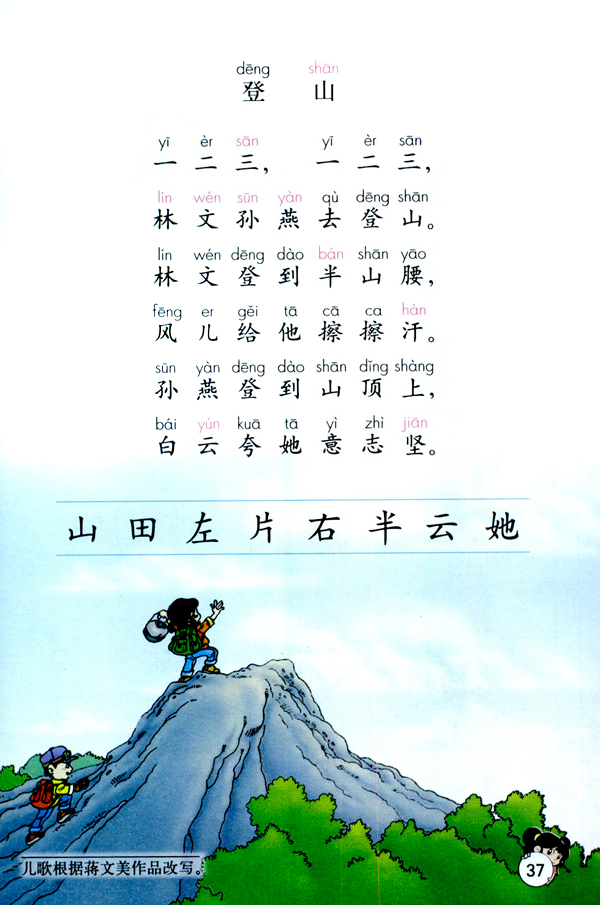 dēng shān
登 山
yī èr sān yī èr sān
一 二 三， 一 二 三，
lín wén sūn yàn qù dēng shān
林 文 孙 燕 去 登 山。
lín wén dēng dào bàn shān yāo
林 文 登 到 半 山 腰，
fēng er gěi tā cā ca hàn
风 儿 给 他 擦 擦 汗。
sūn yàn dēng dào shān dǐng shàng
孙 燕 登 到 山 顶 上，
bái yún kuā tā yì zhì jiān
白 云 夸 她 意 志 坚。
山 田 左 片 右 半 云 她
儿歌根据蒋文美作品改写。
37